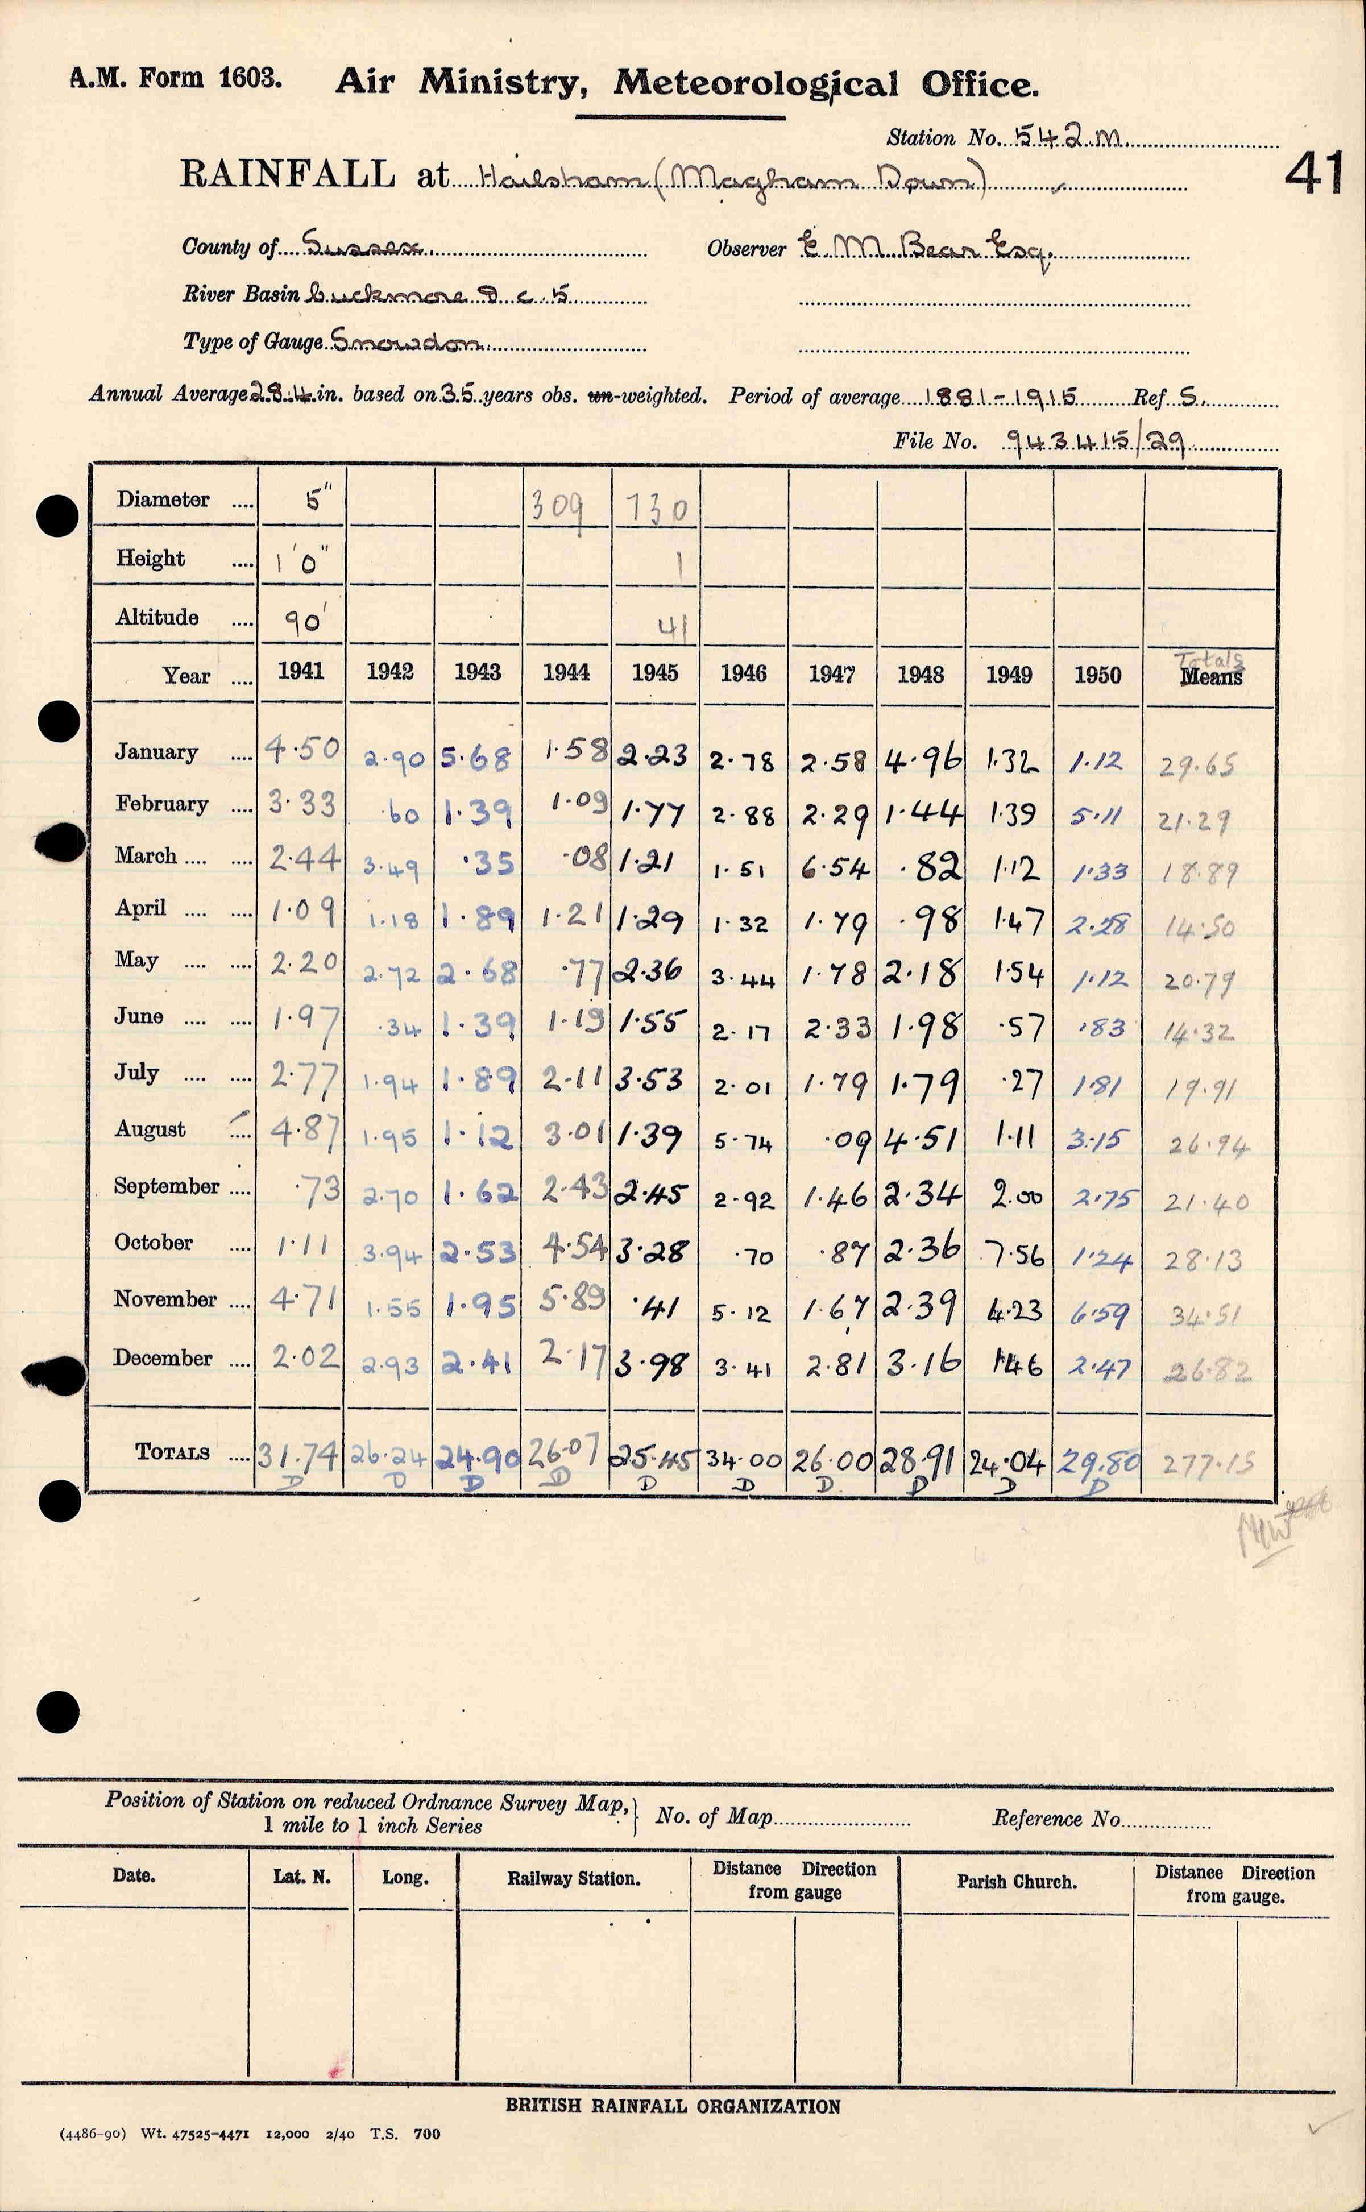 A.M. Form 1603. Air Ministry, Meteorological Office.
Station No. 542.M.
41
RAINFALL at Hailsham (Magham Down)
County of Sussex. Observer E M Bear Esq.
River Basin Cuckmere D c 5
Type of Gauge Snowdon
Annual Average 28.4 in. based on 35 years obs. un-weighted. Period of average 1881-1915 Ref S.
File No. 943415/29
Diameter .... 5" 309 730
Height .... 1'0" 1
Altitude .... 90' 41
Totals
Year .... 1941 1942 1943 1944 1945 1946 1947 1948 1949 1950 Means
January .... 4.50 2.90 5.68 1.58 2.23 2.78 2.58 4.96 1.32 1.12 29.65
February .... 3.33 .60 1.39 1.09 1.77 2.88 2.29 1.44 1.39 5.11 21.29
March .... .... 2.44 3.49 .35 .08 1.21 1.51 6.54 .82 1.12 1.33 18.89
April .... .... 1.09 1.18 1.89 1.21 1.29 1.32 1.79 .98 1.47 2.28 14.50
May .... .... 2.20 2.72 2.68 .77 2.36 3.44 1.78 2.18 1.54 1.12 20.79
June .... .... 1.97 .34 1.39 1.19 1.55 2.17 2.33 1.98 .57 .83 14.32
July .... .... 2.77 1.94 1.89 2.11 3.53 2.01 1.79 1.79 .27 1.81 19.91
August .... 4.87 1.95 1.12 3.01 1.39 5.74 .09 4.51 1.11 3.15 26.94
September .... .73 2.70 1.62 2.43 2.45 2.92 1.46 2.34 2.00 2.75 21.40
October .... 1.11 3.94 2.53 4.54 3.28 .70 .87 2.36 7.56 1.24 28.13
November .... 4.71 1.55 1.95 5.89 .41 5.12 1.67 2.39 4.23 6.59 34.51
December .... 2.02 2.93 2.41 2.17 3.98 3.41 2.81 3.16 1.46 2.47 26.82
TOTALS .... 31.74 26.24 24.90 26.07 25.45 34.00 26.00 28.91 24.04 29.80 277.15
D D D D D D D D D D
Position of Station on reduced Ordnance Survey Map, } No. of Map Reference No.
1 mile to 1 inch Series
Date. Lat. N. Long. Railway Station. Distance Direction from gauge Parish Church. Distance Direction from gauge.
BRITISH RAINFALL ORGANIZATION
(4486-90) Wt. 47525-4471 12,000 2/40 T.S. 700